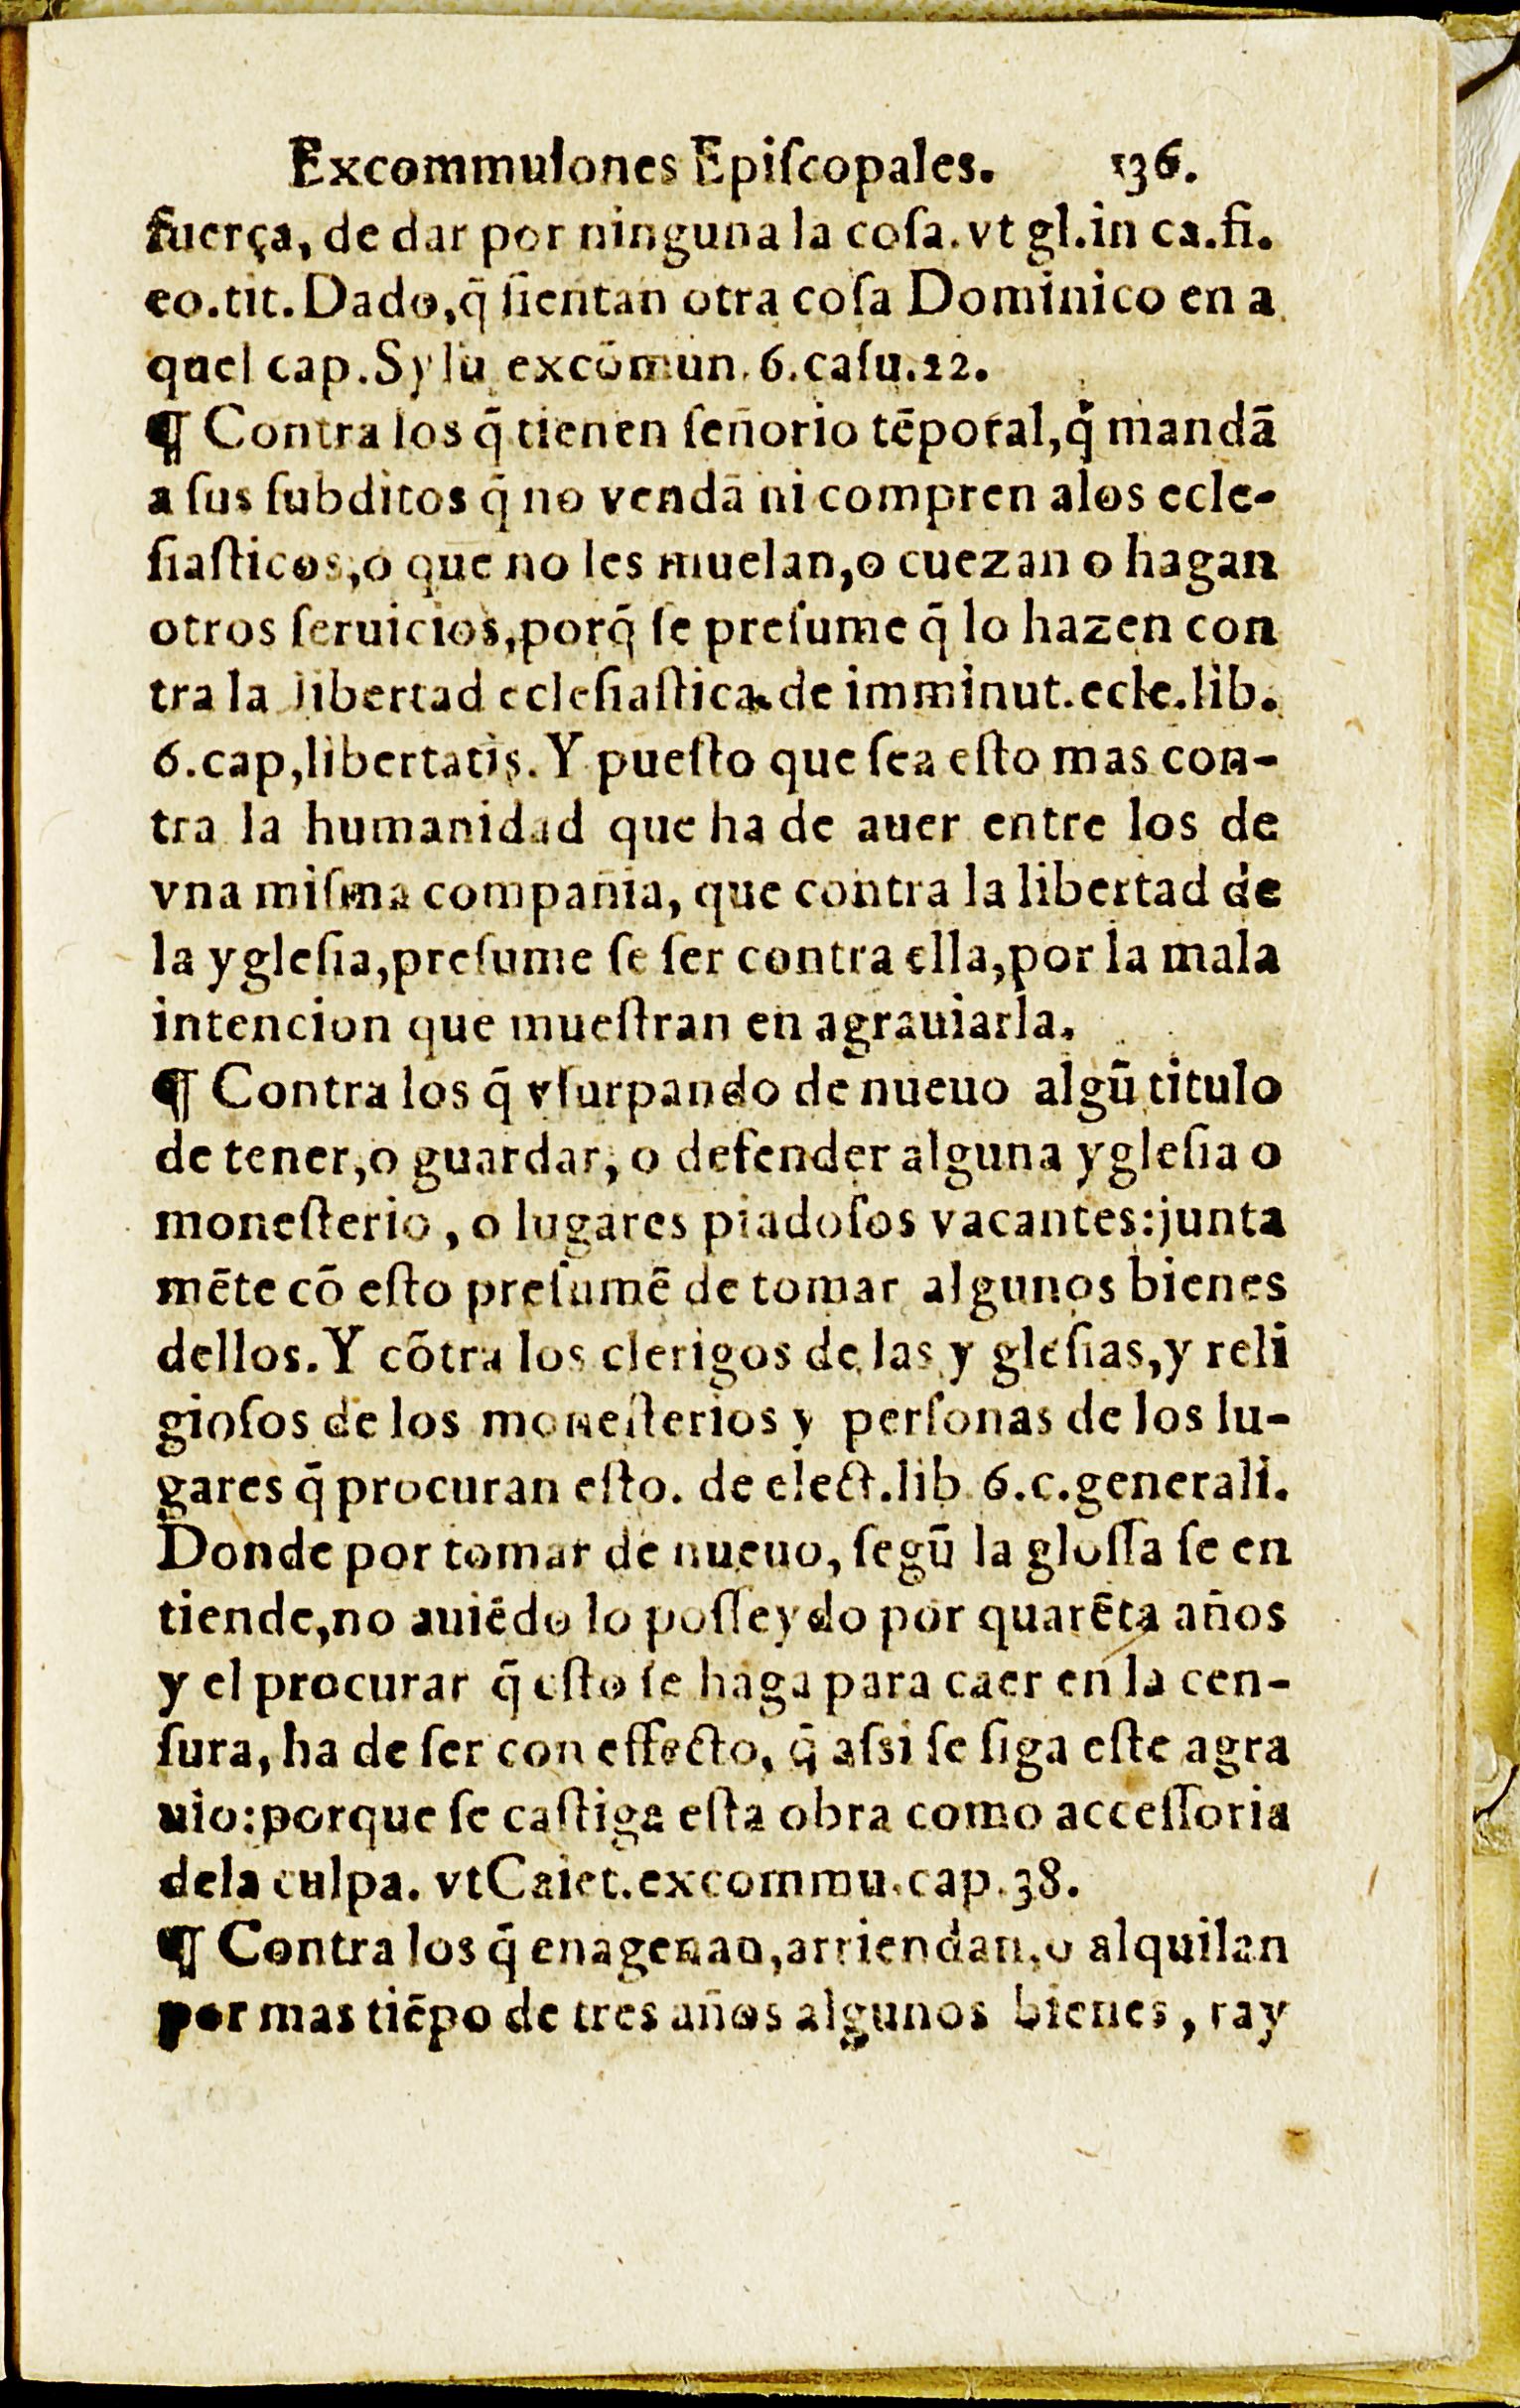 Excommuiones Epiſcopales. 136.
fuerça, de dar por ninguna la coſa. vt gl. in ca. fi.
eo. tit. Dado, q̃ ſientan otra coſa Dominico en a
quel cap. Sylu excõmun. 6. caſu. 22.
¶ Contra los q̃ tienen ſeñorio tẽporal, q̃ mandã
a ſus ſubditos q̃ no vendã ni compren alos ecle-
ſiaſticos, o que no les muelan, o cuezan o hagan
otros ſeruicios, porq̃ ſe preſume q̃ lo hazen con
tra la libertad eccleſiaſtica. de imminut. ecle. lib.
6. cap, libertatis. Y pueſto que ſea eſto mas con-
tra la humanidad que ha de auer entre los de
vna miſma compañia, que contra la libertad de
la ygleſia, preſume ſe ſer contra ella, por la mala
intencion que mueſtran en agrauiarla.
¶ Contra los q̃ vſurpando de nueuo algũ titulo
de tener, o guardar, o defender alguna ygleſia o
moneſterio, o lugares piadoſos vacantes: junta
mẽte cõ eſto preſumẽ de tomar algunos bienes
dellos. Y cõtra los clerigos de las y gleſias, y reli
gioſos de los moneſterios y perſonas de los lu-
gares q̃ procuran eſto. de elect. lib. 6. c. generali.
Donde por tomar de nueuo, ſegũ la gloſſa ſe en
tiende, no auiẽdo lo poſſeydo por quarẽta años
y el procurar q̃ eſto ſe haga para caer en la cen-
ſura, ha de ſer con effecto, q̃ aſsi ſe ſiga eſte agra
uio: porque ſe caſtiga eſta obra como acceſſoria
dela culpa. vt Caiet. excommu. cap. 38.
¶ Contra los q̃ enagenan, arriendan, o alquilan
por mas tiẽpo de tres años algunos bienes, ray